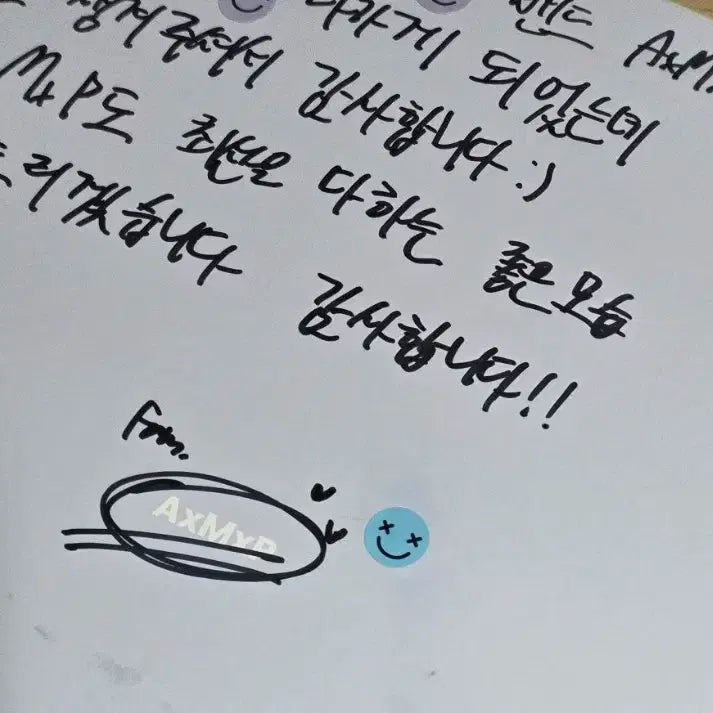 나가게 되었는데
챙겨주셔서 감사합니다 :)
밴드 AxM
MxP도 최선을 다하는 좋은 모습
드리겠습니다 감사합니다!!
From.
AxMxP